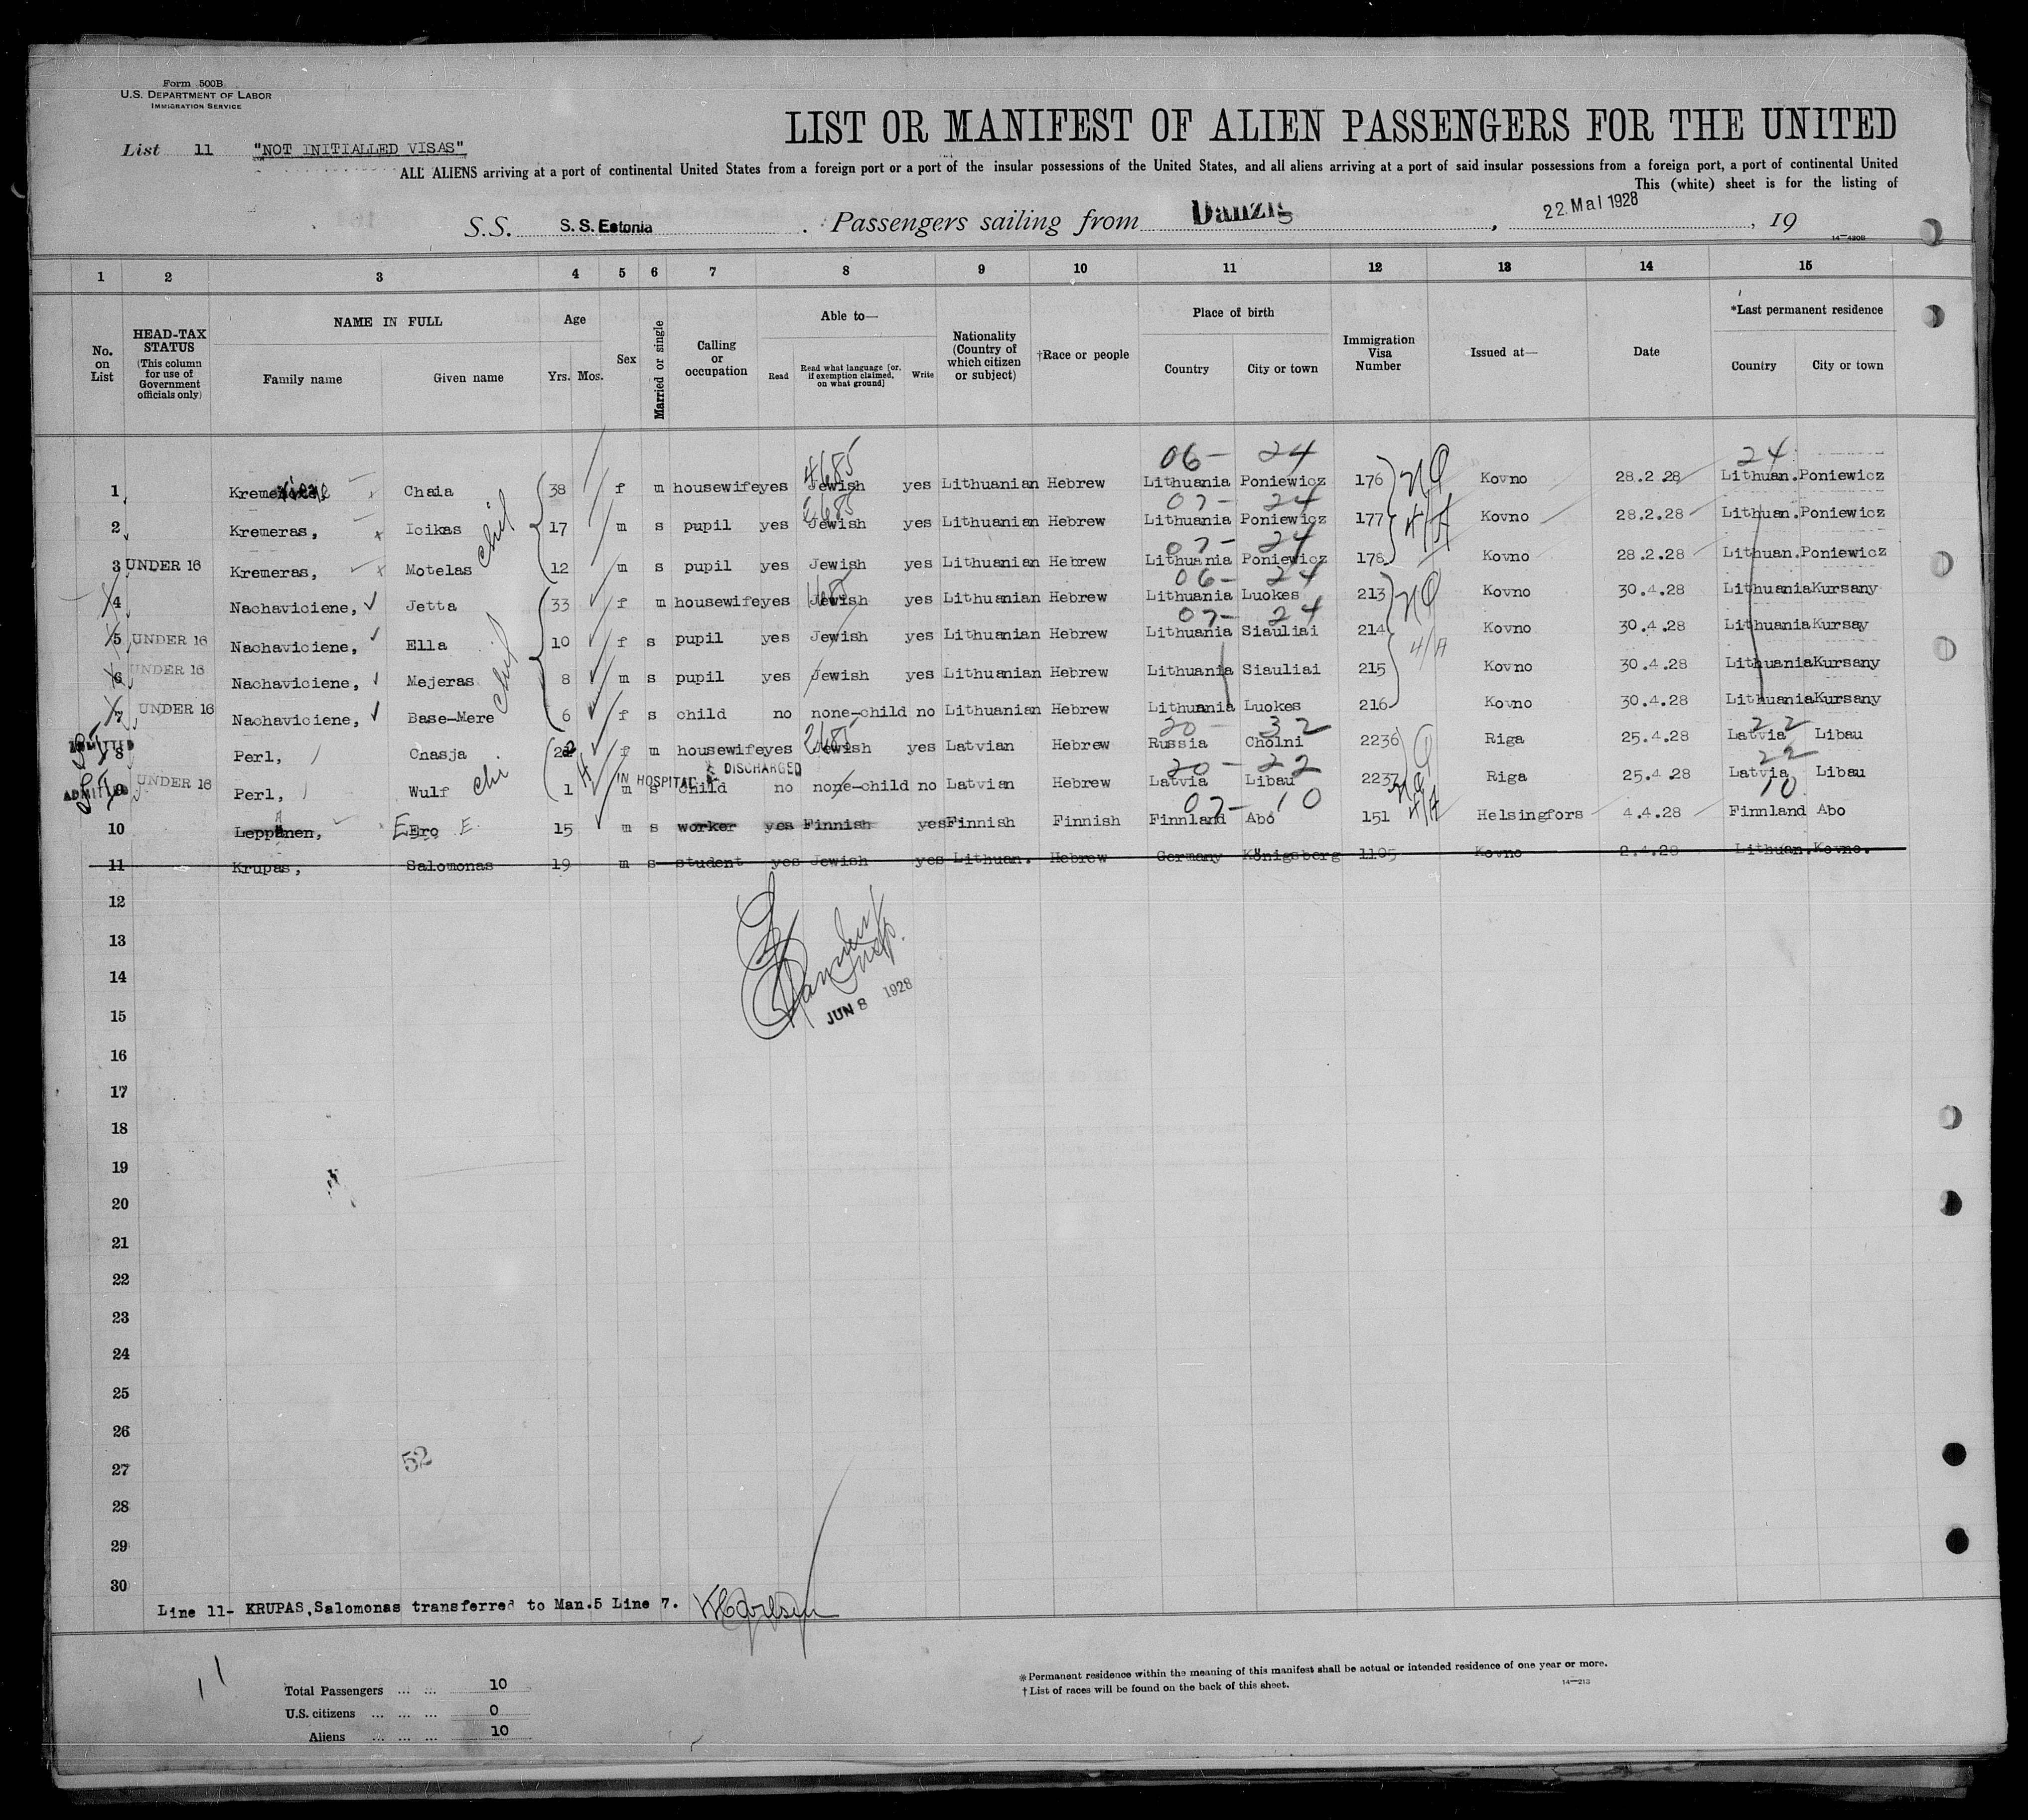 Form 500B
U.S. DEPARTMENT OF LABOR
IMMIGRATION SERVICE
LIST OR MANIFEST OF ALIEN PASSENGERS FOR THE UNITED
List 11 "NOT INITIALLED VISAS"
ALL ALIENS arriving at a port of continental United States from a foreign port or a port of the insular possessions of the United States, and all aliens arriving at a port of said insular possessions from a foreign port, a port of continental United
This (white) sheet is for the listing of
S.S. S.S. Estonia . Passengers sailing from Danzig, 22. Mai 1928, 19
14—420B
1 2 3 4 5 6 7 8 9 10 11 12 13 14 15
No. on List
HEAD-TAX STATUS (This column for use of Government officials only)
NAME IN FULL
Family name Given name
Age
Yrs. Mos.
Sex
Married or single
Calling or occupation
Able to—
Read Read what language [or, if exemption claimed, on what ground] Write
Nationality (Country of which citizen or subject)
†Race or people
Place of birth
Country City or town
Immigration Visa Number
Issued at—
Date
*Last permanent residence
Country City or town
06- 24 24
1 Kremeniene Chaia 38 f m housewife yes Jewish yes Lithuanian Hebrew Lithuania Poniewicz 176 Kovno 28.2.28 Lithuan. Poniewicz
07- 24
2 Kremeras, Icikas 17 m s pupil yes Jewish yes Lithuanian Hebrew Lithuania Poniewicz 177 Kovno 28.2.28 Lithuan. Poniewicz
07- 24
3 UNDER 16 Kremeras, Motelas 12 m s pupil yes Jewish yes Lithuanian Hebrew Lithuania Poniewicz 178 Kovno 28.2.28 Lithuan. Poniewicz
06- 24
4 Nachaviciene, Jetta 33 f m housewife yes Jewish yes Lithuanian Hebrew Lithuania Luokes 213 Kovno 30.4.28 Lithuania Kursany
07- 24
5 UNDER 16 Nachaviciene, Ella 10 f s pupil yes Jewish yes Lithuanian Hebrew Lithuania Siauliai 214 Kovno 30.4.28 Lithuania Kursay
6 UNDER 16 Nachaviciene, Mejeras 8 m s pupil yes Jewish yes Lithuanian Hebrew Lithuania Siauliai 215 Kovno 30.4.28 Lithuania Kursany
7 UNDER 16 Nachaviciene, Base-Mere 6 f s child no none-child no Lithuanian Hebrew Lithuania Luokes 216 Kovno 30.4.28 Lithuania Kursany
20- 32 22
ADMITTED 8 Perl, Chasja 22 f m housewife yes Jewish yes Latvian Hebrew Russia Cholni 2236 Riga 25.4.28 Latvia Libau
IN HOSPITAL DISCHARGED 20- 22 22
ADMITTED 9 UNDER 16 Perl, Wulf 1 m s child no none-child no Latvian Hebrew Latvia Libau 2237 Riga 25.4.28 Latvia Libau
07- 10 10
10 Leppanen, Eero 15 m s worker yes Finnish yes Finnish Finnish Finnland Abo 151 Helsingfors 4.4.28 Finnland Abo
11 Krupas, Salomonas 19 m s student yes Jewish yes Lithuan. Hebrew Germany Königsberg 1105 Kovno 2.4.28 Lithuan. Kovno.
12
13
14
JUN 8 1928
15
16
17
18
19
20
21
22
23
24
25
26
52
27
28
29
30
Line 11- KRUPAS, Salomonas transferred to Man.5 Line 7.
Total Passengers ... ... 10
U.S. citizens ... ... ... 0
Aliens ... ... ... 10
*Permanent residence within the meaning of this manifest shall be actual or intended residence of one year or more.
†List of races will be found on the back of this sheet.
14—213